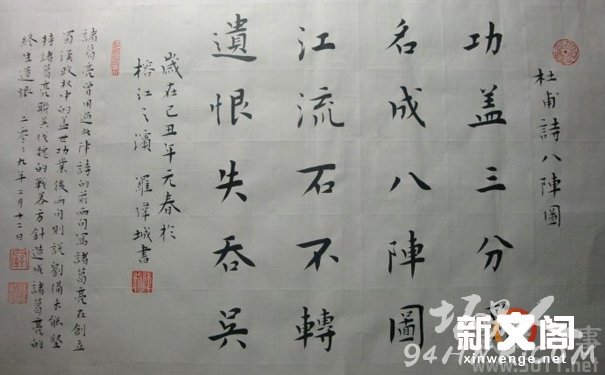 杜甫詩八陣圖
功盖三分
名成八陣圖
江流石不轉
遺恨失吞吳
歲在己丑年元春於
榕江之濱 羅偉城書
諸葛亮曾用過此陣詩的前两句寫諸葛亮在創立
蜀漢政权中的盖世功業後两句則説劉備未能堅
持諸葛亮聯吴伐魏的戰畧方針造成諸葛亮的
終生遺恨 二〇〇九年二月十二日
新文阁
xinwenge.net